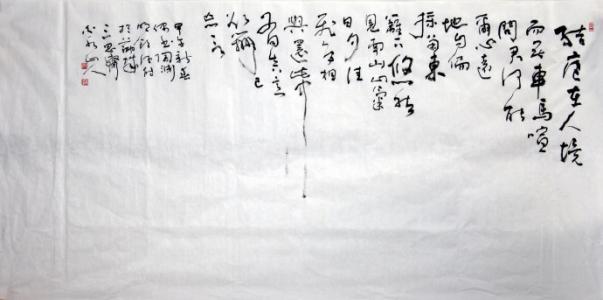 結廬在人境
而無車馬喧
問君何能
爾心遠
地自偏
採菊東
籬下悠然
見南山山氣
日夕佳
飛鳥相
與還此中
有真意
欲辯已
忘言
甲午新春